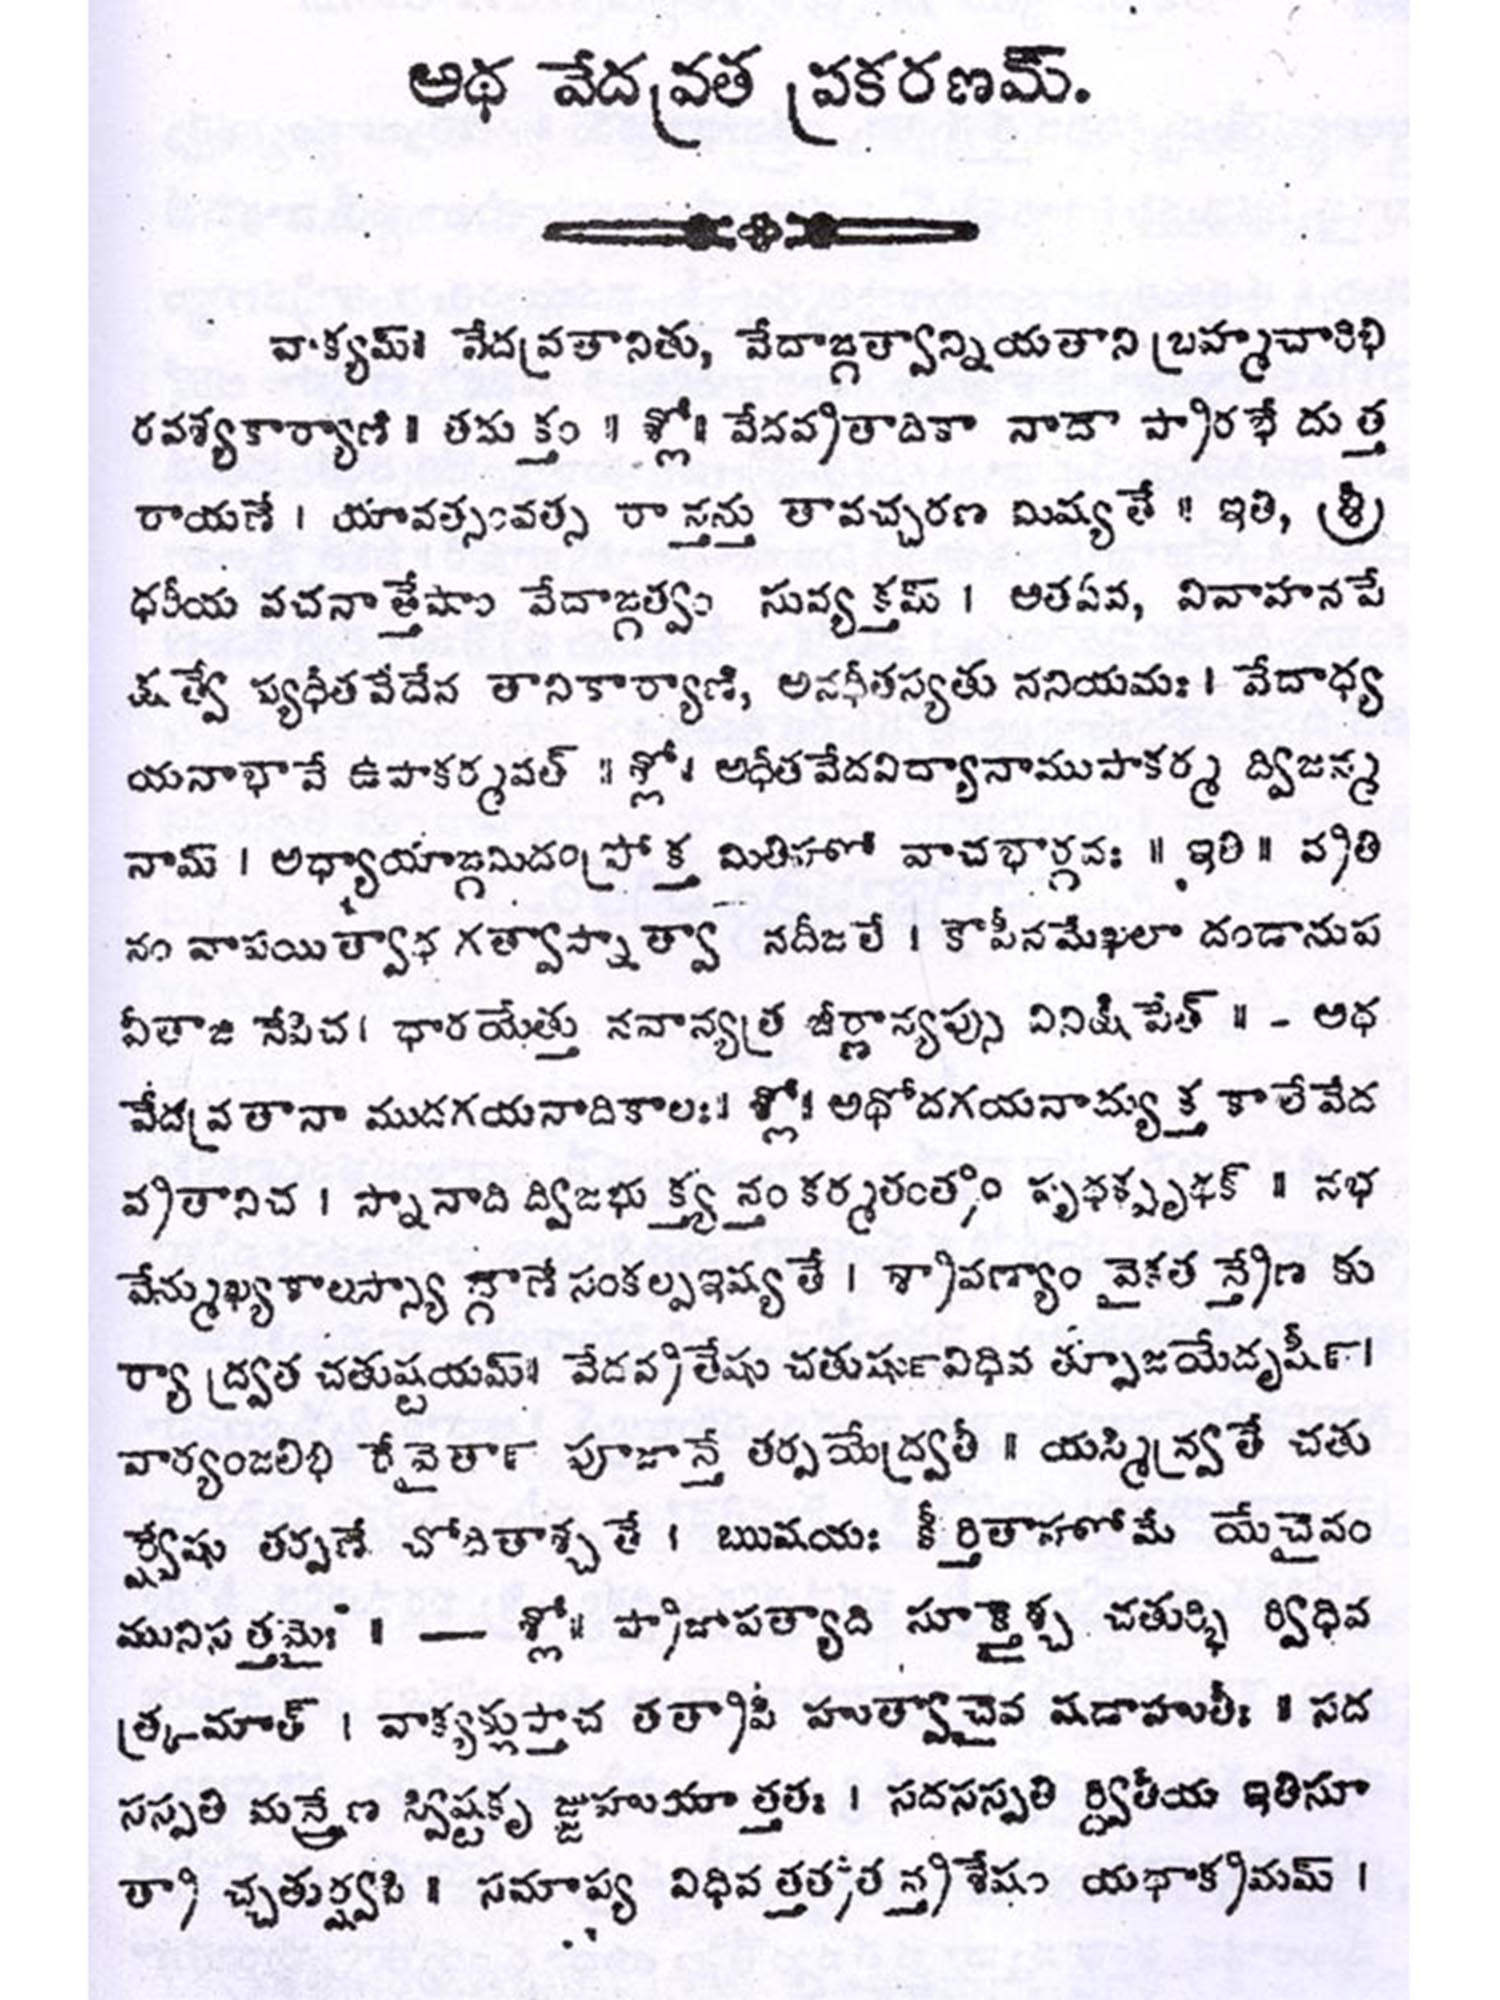 అథ వేదవ్రత ప్రకరణమ్.
వాక్యమ్॥ వేదవ్రతానితు, వేదాఙ్గత్వాన్నియతాని బ్రహ్మచారిభి
రవశ్యకార్యాణి॥ తదుక్తం ॥ శ్లో॥ వేదవ్రతాదికా నాదౌ ప్రారభే దుత్త
రాయణే । యావత్సంవత్స రాన్తన్తు తావచ్చరణ మిష్యతే ॥ ఇతి, శ్రీ
ధరీయ వచనాత్తేషాం వేదాఙ్గత్వం సువ్యక్తమ్ । అతఏవ, వివాహనపే
క్షత్వే ప్యధీతవేదేన తానికార్యాణి, అనధీతస్యతు ననియమః । వేదాధ్య
యనాభావే ఉపాకర్మవత్ ॥ శ్లో। అధీతవేదవిద్యానాముపాకర్మ ద్విజన్మ
నామ్ । అధ్యాయాఙ్గమిదంప్రోక్త మితిహో వాచభార్గవః ॥ ఇతి॥ వ్రతి
నం వాపయిత్వాథ గత్వాస్నాత్వా నదీజలే । కౌపీనమేఖలా దండానుప
వీతాజి నేపిచ। ధారయేత్తు నవాన్యత్ర జీర్ణాన్యప్సు వినిక్షిపేత్ ॥ - అథ
వేదవ్రతానా ముదగయనాదికాలః। శ్లో। అథోదగయనాద్యుక్త కాలేవేద
వ్రతానిచ । స్నానాది ద్విజభుక్త్యన్తం కర్మతంత్రం పృథక్పృథక్ ॥ నభ
వేన్ముఖ్యకాలస్స్యా ద్గౌణేసంకల్పఇష్యతే । శ్రావణ్యాం వైకత న్త్రేణ కు
ర్యా ద్వ్రత చతుష్టయమ్॥ వేదవ్రతేషు చతుర్షువిధివ త్పూజయేదృషీన్।
వార్యంజలిభి రేవైతాన్ పూజాన్తే తర్పయేద్వ్రతీ ॥ యస్మిన్వ్రతే చతు
ర్ష్వేషు తర్పణే చోదితాశ్చతే । ఋషయః కీర్తితాహోమే యేచైవం
మునిసత్తమైః ॥ — శ్లో॥ ప్రాజాపత్యాది సూక్తైశ్చ చతుర్భి ర్విధివ
త్క్రమాత్ । వాక్యక్లుప్తాచ తత్రాపి హుత్వాచైవ షడాహుతీః ॥ సద
సస్పతి మన్త్రేణ స్విష్టకృ జ్జుహుయా త్తతః । సదసస్పతి ర్ద్వితీయ ఇతిసూ
త్రా చ్చతుర్ష్వపి ॥ సమాప్య విధివ త్తత్రత న్త్రశేషం యథాక్రమమ్ ।